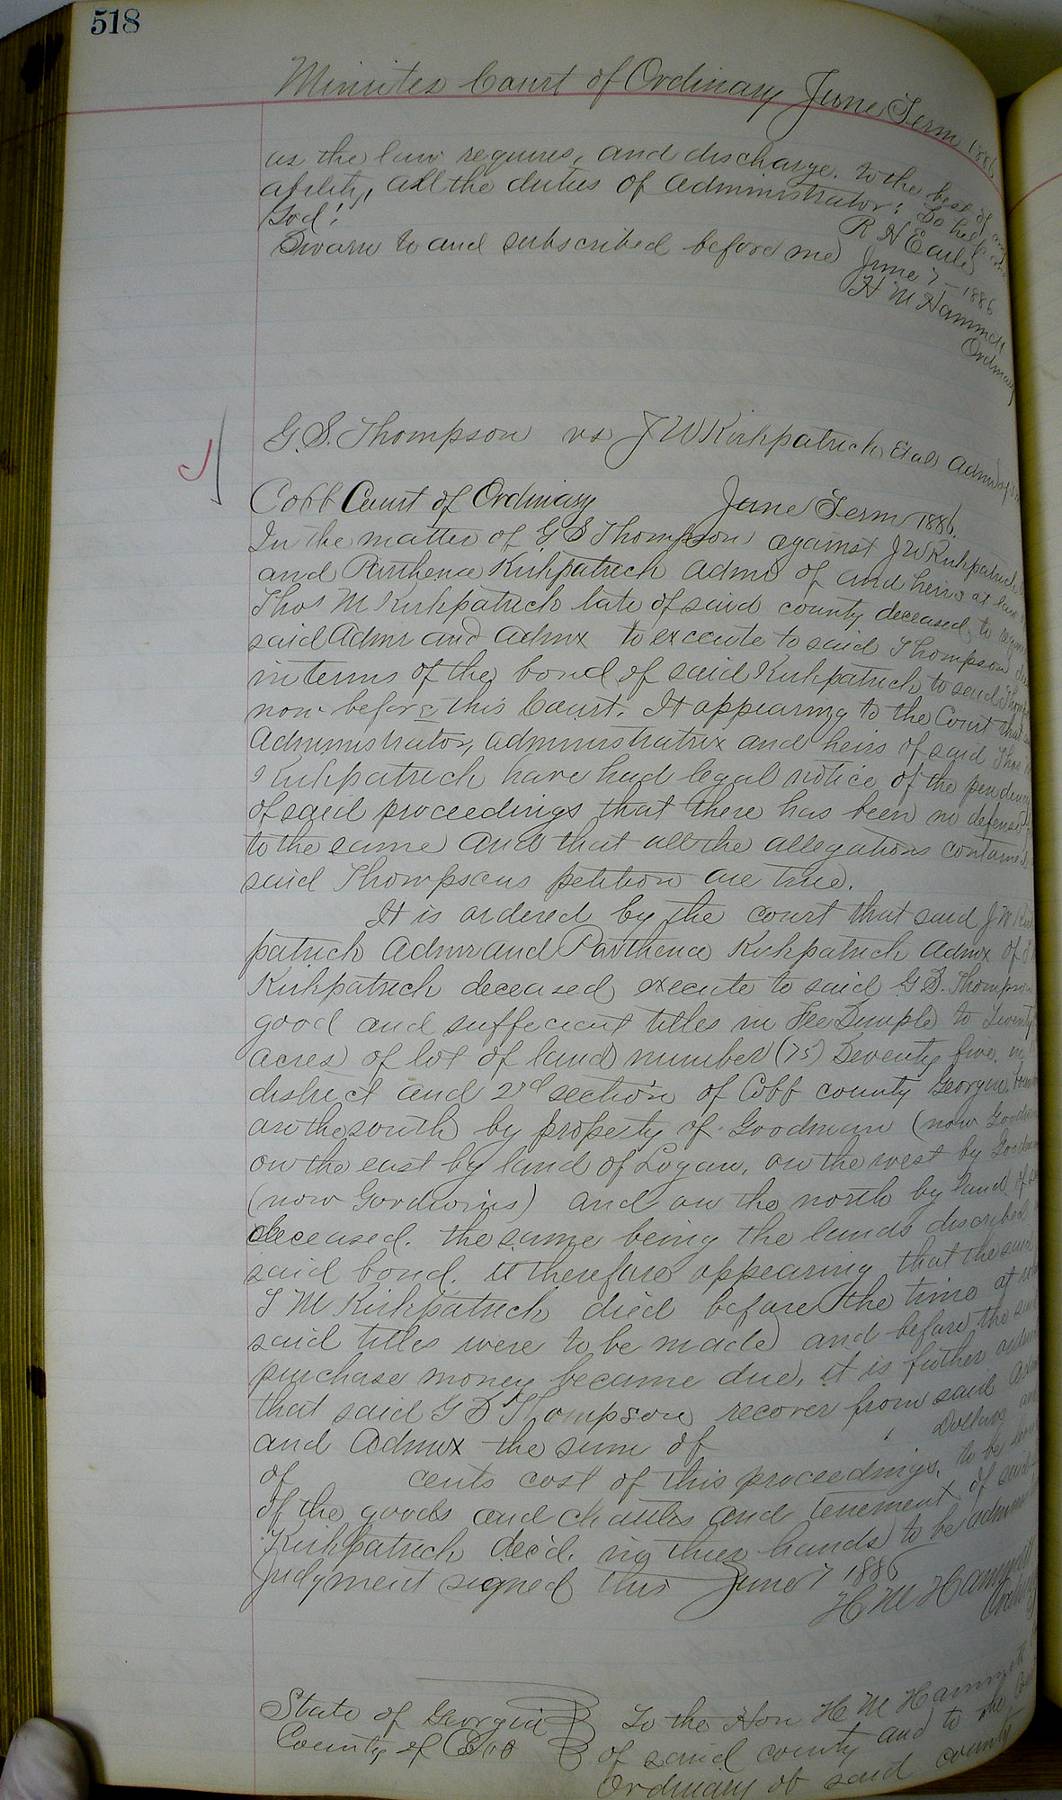 518
Minutes Court of Ordinary June Term 1886
as the law requires, and discharge. to the best of my
ability, all the duties of administrator: So help me
God!
R H Earle
Sworn to and subscribed before me June 7 - 1886
H M Hammett
Ordinary
G. S. Thompson vs J W Kirkpatrick Et als Admr of
Cobb Court of Ordinary June Term 1886.
In the matter of G S Thompson against J W Kirkpatrick
and Parthena Kirkpatrick Admr of and heirs at law
Thos M Kirkpatrick late of said county deceased, to
said Admr and Admx to execute to said Thompson
in terms of the bond of said Kirkpatrick to said
now before this Court. It appearing to the Court that
Administrator, administratrix and heirs of said Thos
Kirkpatrick have had legal notice of the pendency
of said proceedings that there has been no defense
to the same and that all the allegations contained
said Thompsons petition are true.
It is ordered by the court that said J W
patrick Admr and Parthena Kirkpatrick Admx of
Kirkpatrick deceased execute to said G S. Thompson
good and sufficient titles in Fee Simple to twenty
acres of lot of land number (75) Seventy five in
district and 2nd section of Cobb county Georgia,
on the south by property of Goodman (now
on the east by land of Logan, on the west by
(now Gordwins) and on the north by land of
deceased. the same being the lands described
said bond. it therefore appearing that the said
T M Kirkpatrick died before the time at
said titles were to be made and before the
purchase money became due, it is futher
that said G S Thompson recover from said
and Admx the sum of Dollars
of cents cost of this proceedings, to be
of the goods and chattles and tenement of said
Kirkpatrick dec'd. in thier hands to be
Judgment signed this June 7 1886
H M Hammett
State of Georgia To the Hon H M Hammett
County of Cobb of said county and to the
Ordinary of said county